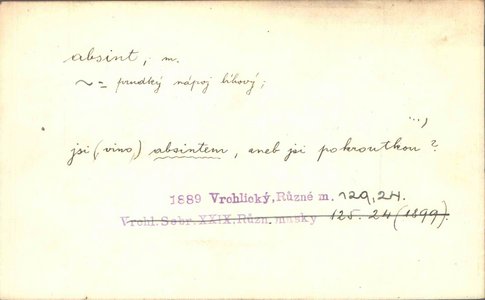 absint, m.
~ = prudký nápoj lihový;
...,
jsi (, víno,) absintem, aneb jsi pokroutkou?
1889 Vrchlický, Různé m. 129, 24.
Vrchl. Sebr. XXIX. Různ. masky 125. 24 (1899).